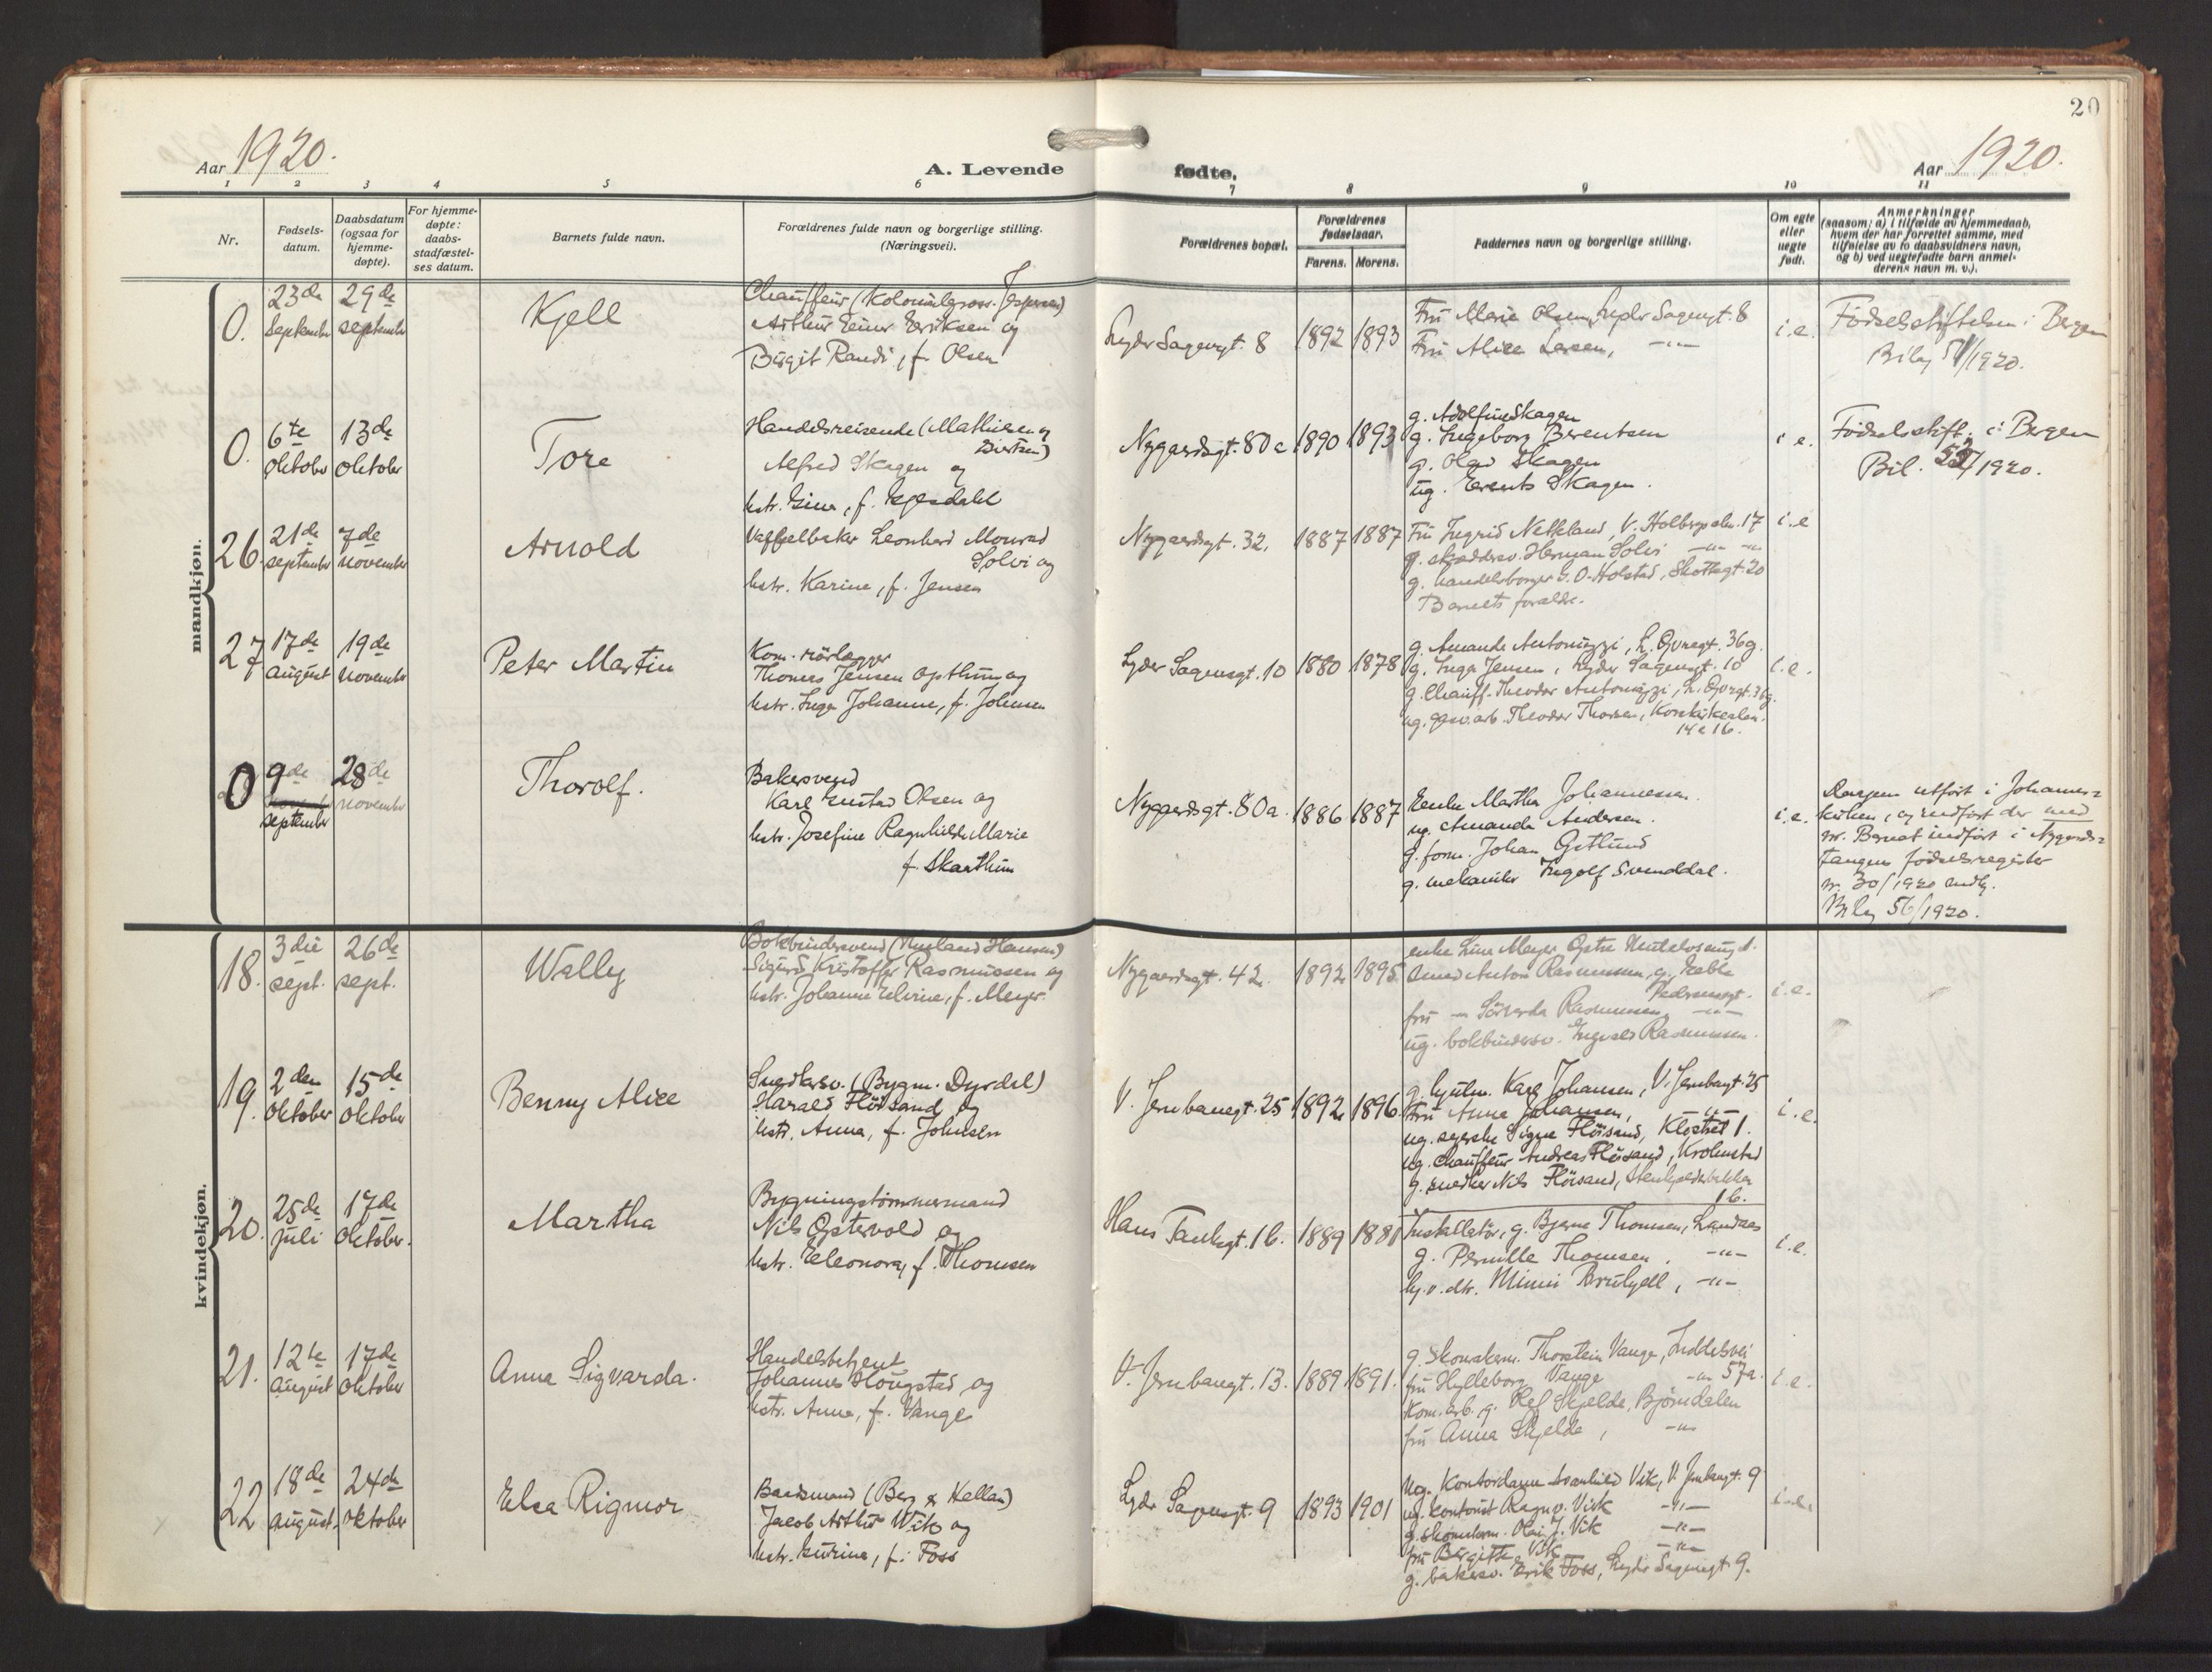 20
Aar 1920.
A. Levende fødte,
Aar 1920.
1 2 3 4 5 6 7 8 9 10 11
Nr.
Fødsels-
datum.
Daabsdatum
(ogsaa for
hjemme-
døpte).
For hjemme-
døpte:
daabs-
stadfæstel-
ses datum.
Barnets fulde navn.
Forældrenes fulde navn og borgerlige stilling.
(Næringsvei).
Forældrenes bopæl.
Forældrenes
fødselsaar.
Farens. Morens.
Faddernes navn og borgerlige stilling.
Om egte
eller
uegte
født.
Anmerkninger
(saasom: a) i tilfælde av hjemmedaab,
hvem der har forrettet samme, med
tilføielse av to daabsvidners navn,
og b) ved uegtefødte barn anmel-
derens navn m. v.).
mandkjøn.
0.
23de
September
29de
september
Kjell
Chauffeur (Kolonialgross. Jespersen)
Arthur Einer Eriksen og
Birgit Randi, f. Olsen
Lyder Sagensgt. 8
1892 1893
Fru Marie Olsen, Lyder Sagengt. 8
Fru Alice Larsen, -"-
i.e.
Fødselsstiftelsen i Bergen
Bilag 51/1920.
0.
6te
oktober
13de
oktober
Tore
Handelsreisende (Mathiesen og
Alfred Skagen og
hstr. Gina, f. Gjesdahl
Nygaardsgt. 80a
1890 1893
g. Adolfine Skagen
g. Ingeborg Berentsen
g. Olav Skagen
ug. Berents Skagen.
i e.
Fødselsstift. i Bergen
Bil. 52/1920.
26.
21de
september
7de
november
Arnold
Vaffelbaker Leonhard Monrad
Solvi og
hstr. Karine, f. Jensen
Nygaardsgt. 32.
1887 1887
Fru Ingrid Netkland, V. Holbergsalm. 17
g. skræddersv. Herman Solvi -"- -"-
g. handelsborger G. O. Holstad, Skottegt. 20
Barnets forældre.
i.e
27
17de
august
19de
november
Peter Martin
Kom. rörlægger
Thomas Jensen Opthun og
hstr. Inga Johanne, f. Johnsen
Lyder Sagensgt. 10
1880 1878
g. Amanda Antonizzi, L. Øvregt. 36g.
g. Inga Jensen, Lyder Sagensgt. 10
g. Chauff. Theodor Antonizzi, L. Øvregt. 36g.
ug. gasv.arb. Theodor Thorsen, Korskirkealm.
14 e 16.
i.e.
0
9de
september
28de
november
Thorolf.
Bakersvend
Karl Gustav Olsen og
hstr. Josefine Ragnhilda Marie
f. Skarthun
Nygaardsgt. 80a.
1886 1887
Enke Martha Johannessen.
ug. Amanda Andersen.
g. form. Johan Gotlund
g. mekaniker Ingolf Svenddal.
i.e.
Daapen utført i Johannes-
kirken, og indført der med
nr. Barnet indført i Nygaards-
tangens fødselsregister
nr. 30/1920 andlg.
Bilag 56/1920.
kvindekjøn.
18.
3die
sept.
26de
sept.
Wally
Bokbindersvend (Hansen)
Sigurd Kristoffer Rasmussen og
hstr. Johanne Elvine, f. Meyer
Nygaardsgt. 42.
1892 1895
enke Lina Meyer Østre
Anton Rasmussen, g.
Pedersensgt.
fru Rasmussen -"-
ug. bokbindersv. Ingvald Rasmussen.
i.e.
19.
2den
oktober
15de
oktober
Benny Alice
Snedkersv. (Bygm. Dyrdal)
Harald Flöisand, og
hstr. Anna, f. Johnsen
V. Jernbanegt. 25
1892 1896.
Karl Johansen, V. Jernbgt. 25
Fru Anna Johansen, -"-
ug. syerske Signe Flöisand, Klostret 1.
ug. chauffeur Andreas Flöisand, Krohnstad
g. snedker Nils Flöisand,
1 b.
i.e.
20.
25de
juli
17de
oktober.
Martha
Bygningstömmermand
Nils Opstevold og
hstr. Eleonora, f. Thomsen
Hans Tanksgt. 1b.
1889 1881
Installatör, g. Bjarne Thomsen, Landaas
g. Pernille Thomsen, -"-
Mimmi Bruhjell, -"-
i.e.
21.
12te
august
17de
oktober
Anna Sigvarda.
Handelsbetjent
Johannes Hougstad og
hstr. Anna, f. Vange
V. Jernbanegt. 13.
1889 1891.
g. Skomakerm. Thorstein Vange, Loddesvei
fru Hylleborg Vange -"- 57a.
Kom. arb. g. Olaf Skjelde, Björndalen
fru Anna Skjelde, -"-
i.e.
22
18de
august.
24de
oktober
Elsa Rigmor
Baadsmand (Berg & Kellan)
Jacob Arthur Wik og
hstr. Gurine, f. Foss
Lyder Sagensgt. 9
1893 1901
Ug. Kontordame Svanhild Vik, V. Jernbangt. 9
ug. kontorist Ragnv. Vik -"-
g. skomakerm. Olai J. Vik -"-
fru Birgitte Vik -"-
g. bakersv. Erik Foss, Lyder Sagensgt. 9.